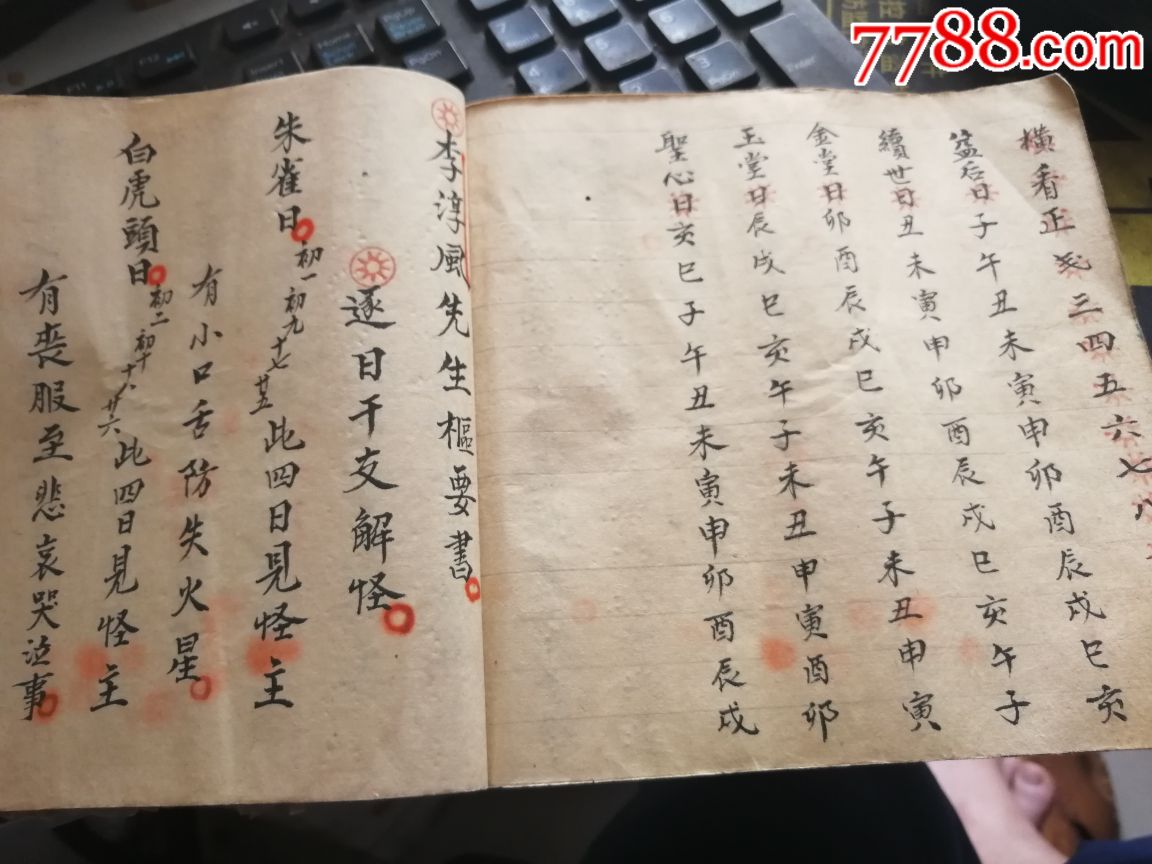 7788.com
橫看正弍三四五六七八
益后日子午丑未寅申卯酉辰戌巳亥
續世日丑未寅申卯酉辰戌巳亥午子
金堂日卯酉辰戌巳亥午子未丑申寅
玉堂日辰戌巳亥午子未丑申寅酉卯
聖心日亥巳子午丑未寅申卯酉辰戌
李淳風先生樞要書
逐日干支解怪
朱雀日初一初九十七廿五此四日見怪主
有小口舌防失火星
白虎頭日初二初十十八廿六此四日見怪主
有喪服至悲哀哭泣事
F11
F12
Insert
Home
PgUp
Enter